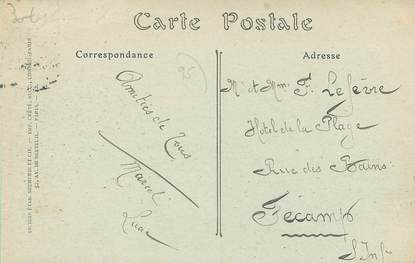 Carte Postale
Correspondance
Adresse
25
Amitiés de Tous
Marcel
Mr et Mme F. Lefèvre
Hôtel de la Plage
Rue des Bains
Fécamp
S. Infre